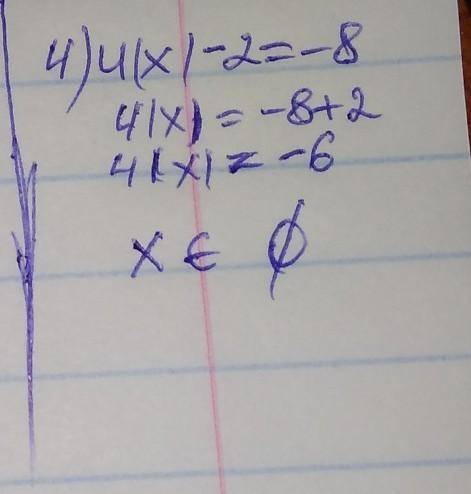 4) 4|x| - 2 = -8
4|x| = -8 + 2
4|x| = -6
x ∈ ∅